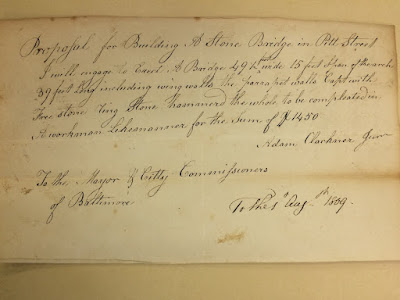 Proposal for Building A Stone Bridge in Pitt Street
I will engage to Erect A Bridge 49 ft wide 15 feet Span of the arch
39 feet Long including wing walls the parapet walls Capt with
Free stone Ring Stone hammerd the whole to be compleated in
A workman Likemanner for the Sum of $1450
Adam
To the Mayor & Citty Commissioners
of Baltimore
To the 1809.